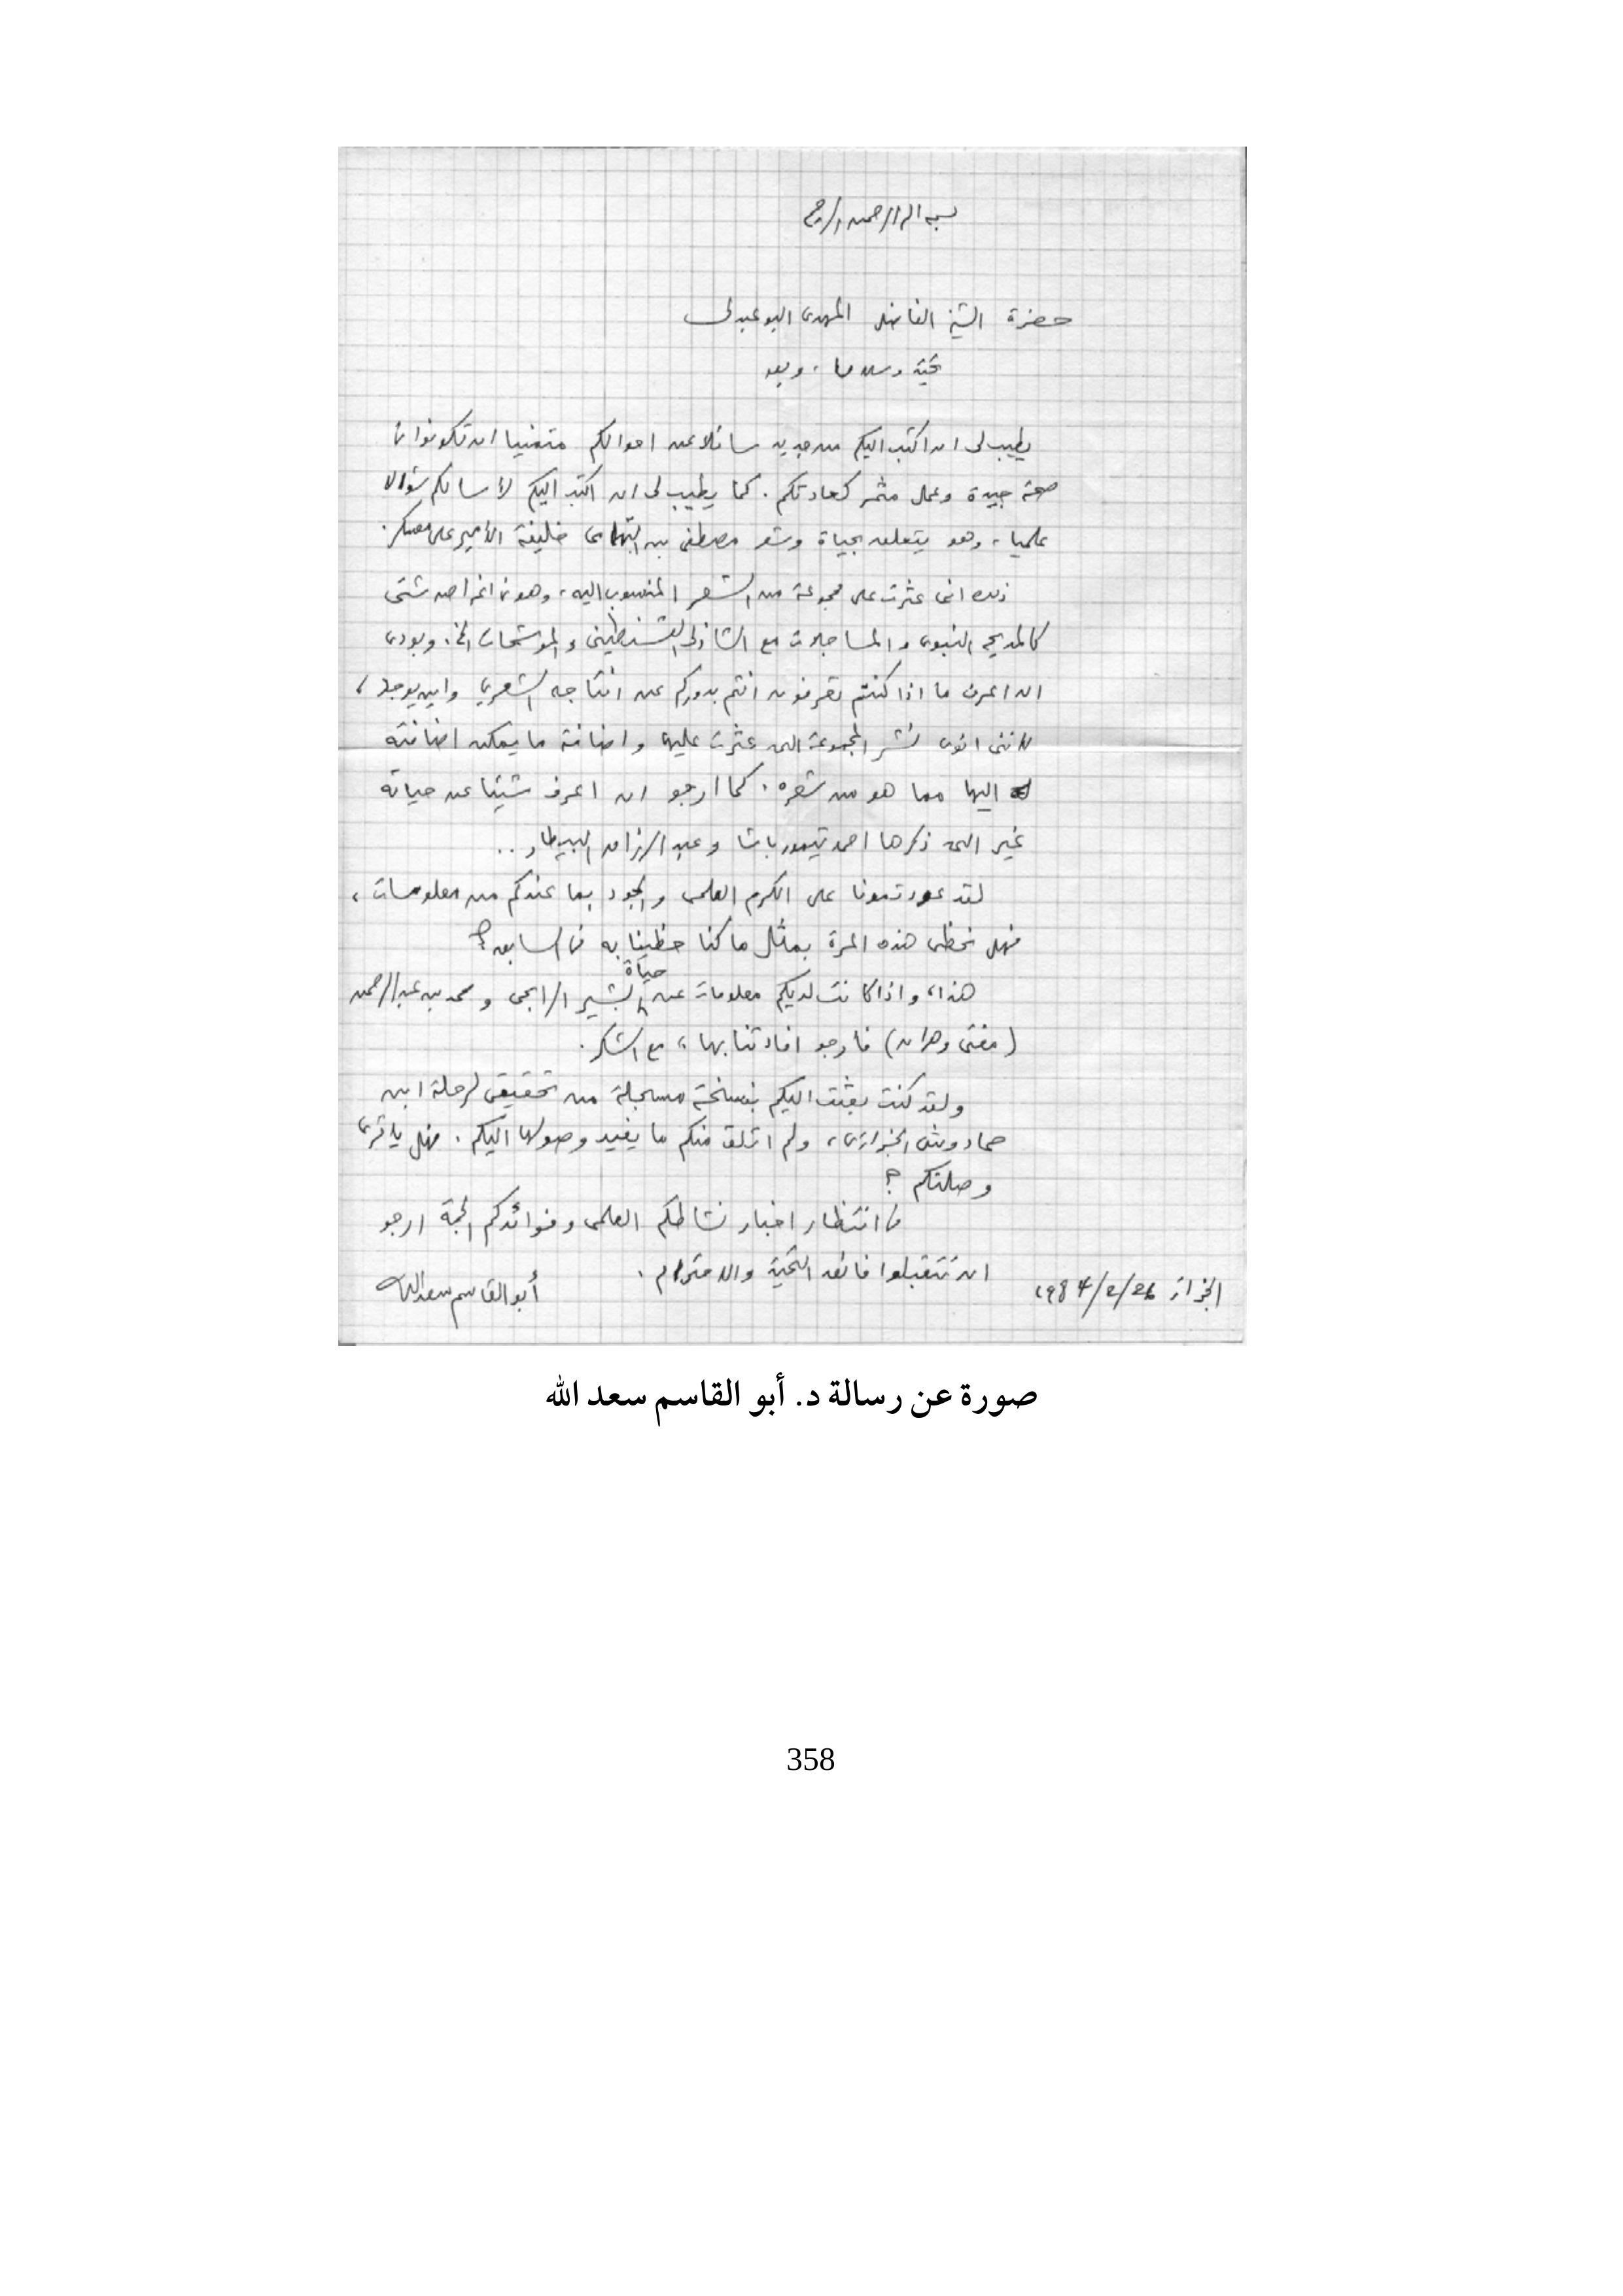 بسم الله الرحمن الرحيم
حضرة الشيخ الفاضل المهدى البوعبدلى
تحية وسلاما، وبعد
يطيب لى ان اكتب اليكم من جديد سائلا عن احوالكم متمنيا ان تكونوا فى
صحة جيدة وعمل مثمر كعادتكم. كما يطيب لى ان اكتب اليكم لأسالكم سؤالا
علميا، وهو يتعلق بحياة وشعر مصطفى بن التهامى خليفة الأمير على معسكر.
ذلك انى عثرت على مجموعة من الشعر المنسوب اليه، وهو فى اغراض شتى
كالمديح النبوى والمساجلات مع الشاذلى القسنطينى والموشحات الخ. وبودى
ان اعرف ما اذا كنتم تعرفون انتم بدوركم عن انتاجه الشعري واين يوجد،
لاننى انوى نشر المجموعة التى عثرت عليها واضافة ما يمكن اضافته
اليها مما هو من شعره. كما ارجو ان اعرف شيئا عن حياته
غير التى ذكرها احمد تيمور باشا وعبد الرزاق البيطار..
لقد عودتمونا على الكرم العلمى والجود بما عندكم من معلومات،
فهل نحظى هذه المرة بمثل ما كنا حظينا به فى السابق؟
هذا، واذا كانت لديكم معلومات عن حياة البشير الرابحى ومحمد بن عبد الرحمن
(مفتى وهران) فارجو افادتنا بها، مع الشكر.
ولقد كنت بعثت اليكم بنسخة مسجلة من تحقيقى لرحلة ابن
حمادوش الجزائرى، ولم اتلق منكم ما يفيد وصولها اليكم. فهل يا ترى
وصلتكم؟
فى انتظار اخبار نشاطكم العلمى وفوائدكم الجمة ارجو
ان تتقبلوا فائق التحية والاحترام.
الجزائر 26/2/1984
أبو القاسم سعد الله
صورة عن رسالة د. أبو القاسم سعد الله
358